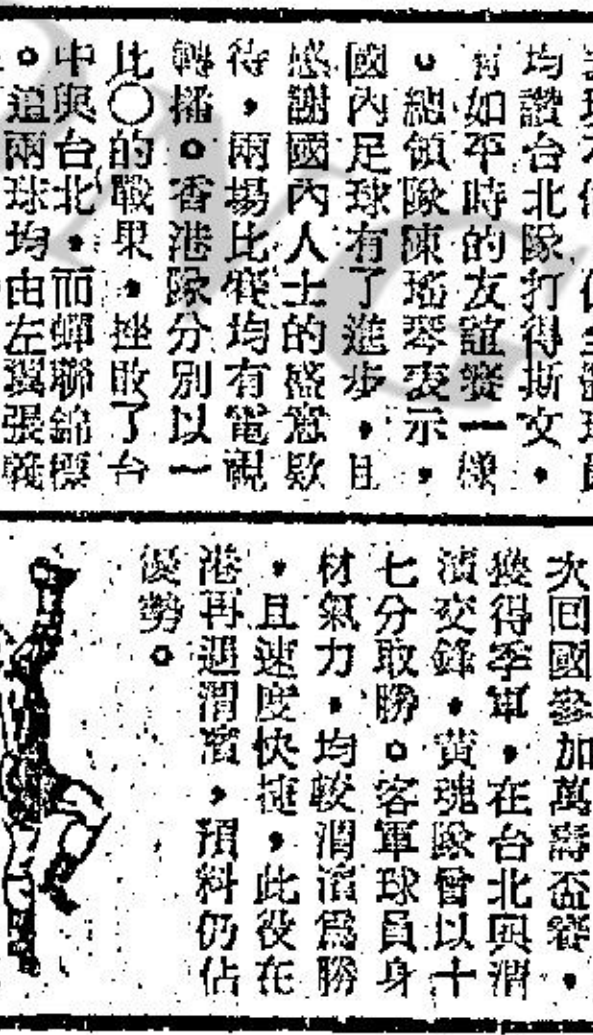 均讚台北隊打得斯文，
有如平時的友誼賽一樣
。總領隊陳瑤琴表示，
國內足球有了進步，且
感謝國內人士的盛意欵
待，兩場比賽均有電視
轉播。香港隊分別以一
比〇的戰果，挫敗了台
中與台北，而蟬聯錦標
。這兩球均由左翼張義
次回國參加萬壽盃賽，
獲得季軍，在台北與渭
濱交鋒，黃魂隊曾以十
七分取勝。客軍球員身
材氣力，均較渭濱爲勝
，且速度快捷，此役在
港再遇渭濱，預料仍佔
優勢。